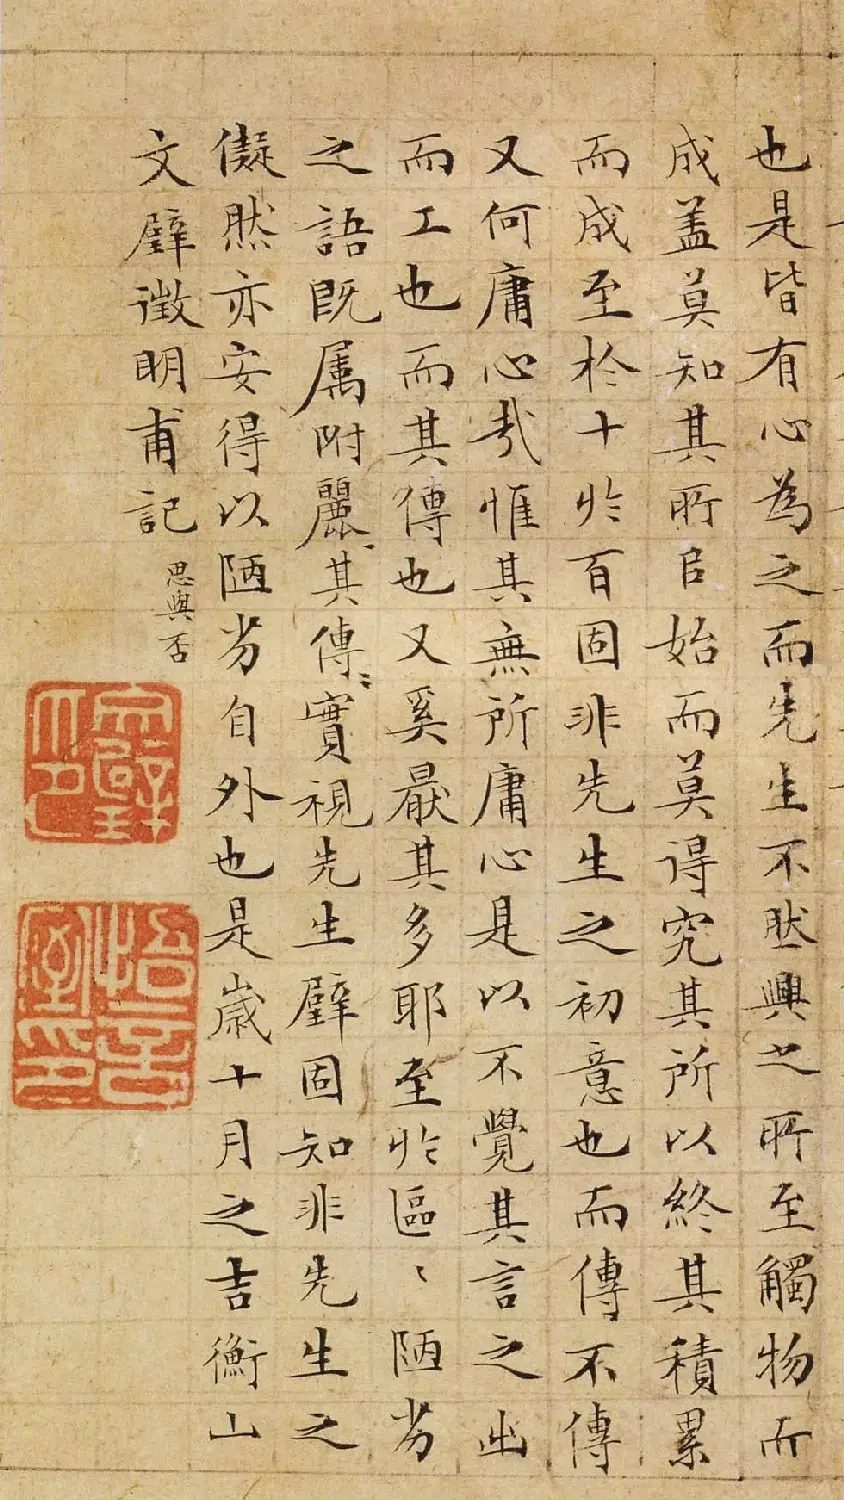 也是皆有心為之而先生不然興之所至觸物而
成盖莫知其所㠯始而莫得究其所以終其積累
而成至於十於百固非先生之初意也而傳不傳
又何庸心哉惟其無所庸心是以不覺其言之出
而工也而其傳也又奚厭其多耶至於區〻陋劣
之語既属附麗〻其傳〻實視先生壁固知非先生之
儗然亦安得以陋劣自外也是歲十月之吉衡山
文壁徵明甫記
思與否
悟言室印